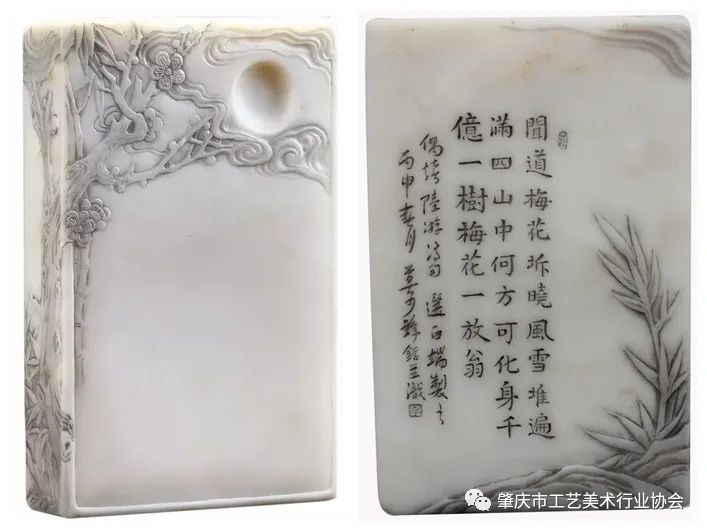 聞道梅花坼曉風雪堆遍
滿四山中何方可化身千
億一樹梅花一放翁
偶 陸游诗句選白端製之
丙申春月莫少鋒銘並識
肇庆市工艺美术行业协会